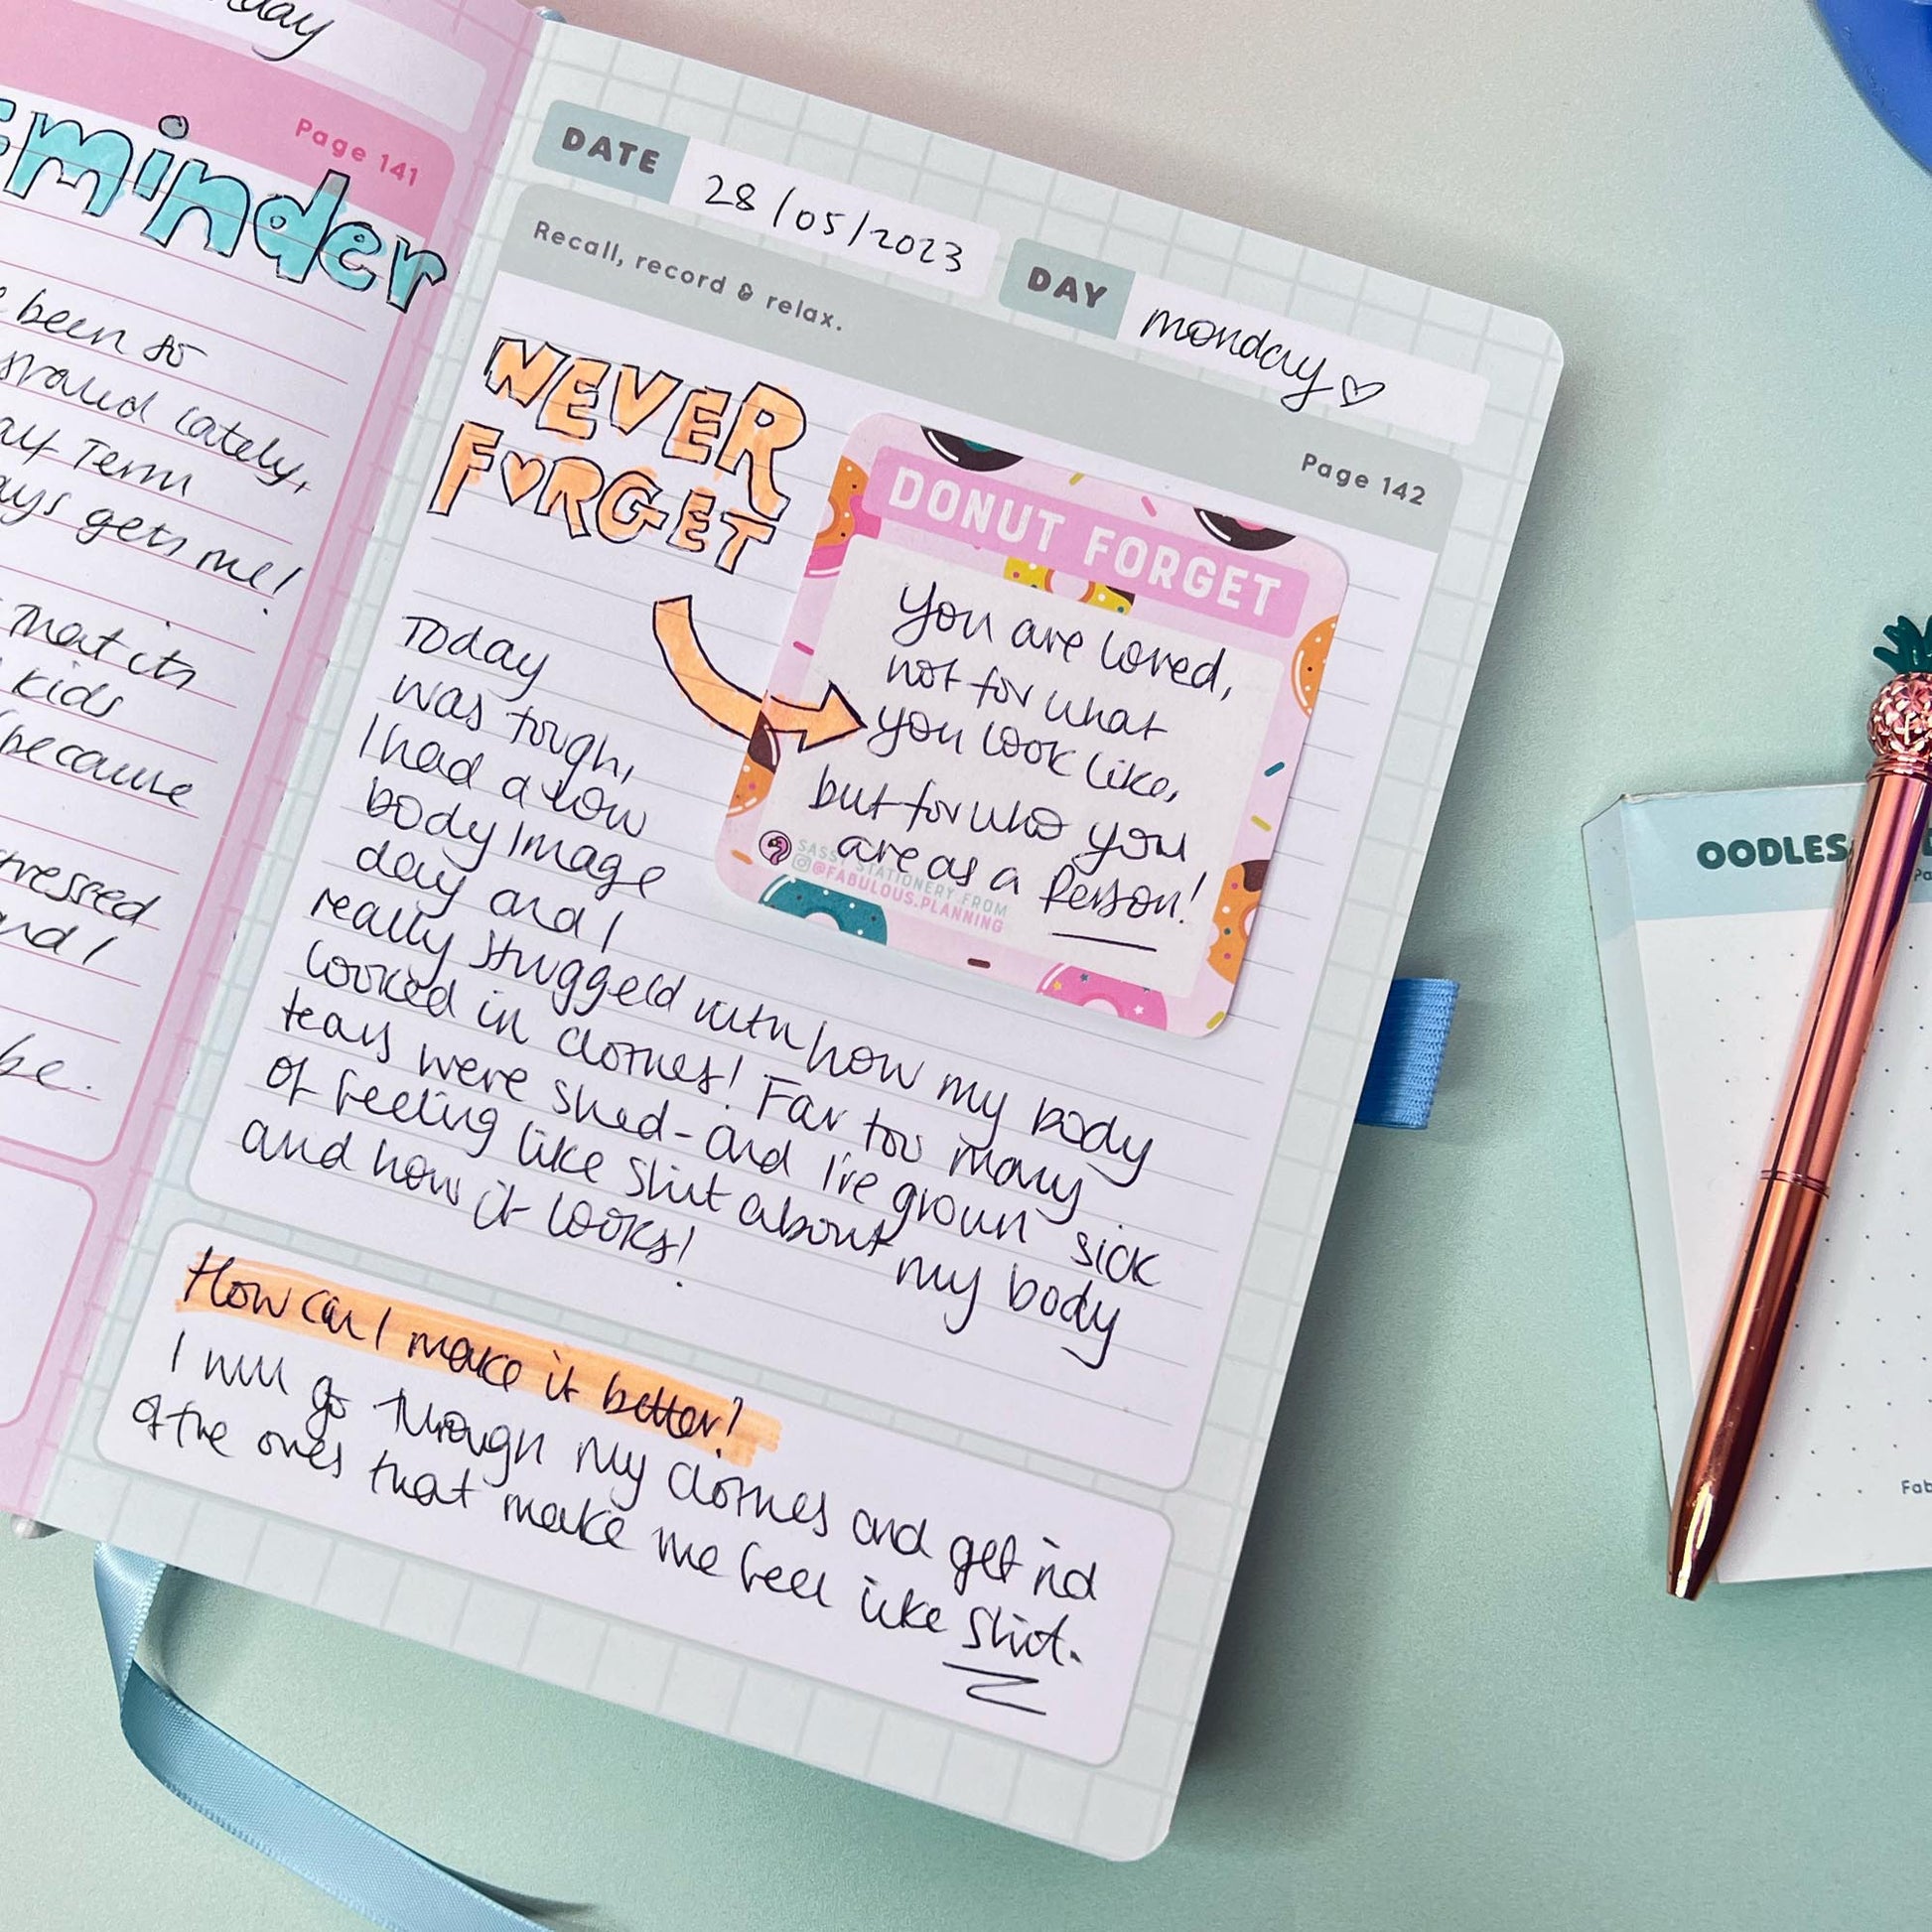 day
Page 141
minder
been so
lately,
Term
gets me!
that its
kids
because
stressed
and I
be.
DATE 28/05/2023 DAY monday
Recall, record & relax.
Page 142
NEVER
FORGET
DONUT FORGET
You are loved,
not for what
you look like,
but for who you
are as a Person!
SASSY STATIONERY FROM
@FABULOUS.PLANNING
Today
was tough,
I had a low
body image
day and I
really struggeld with how my body
looked in clothes! Far too many
tears were shed - and I've grown sick
of feeling like Shit about my body
and how it looks!
How can I make it better?
I will go through my clothes and get rid
of the ones that make me feel like Shit.
OODLES
Fab